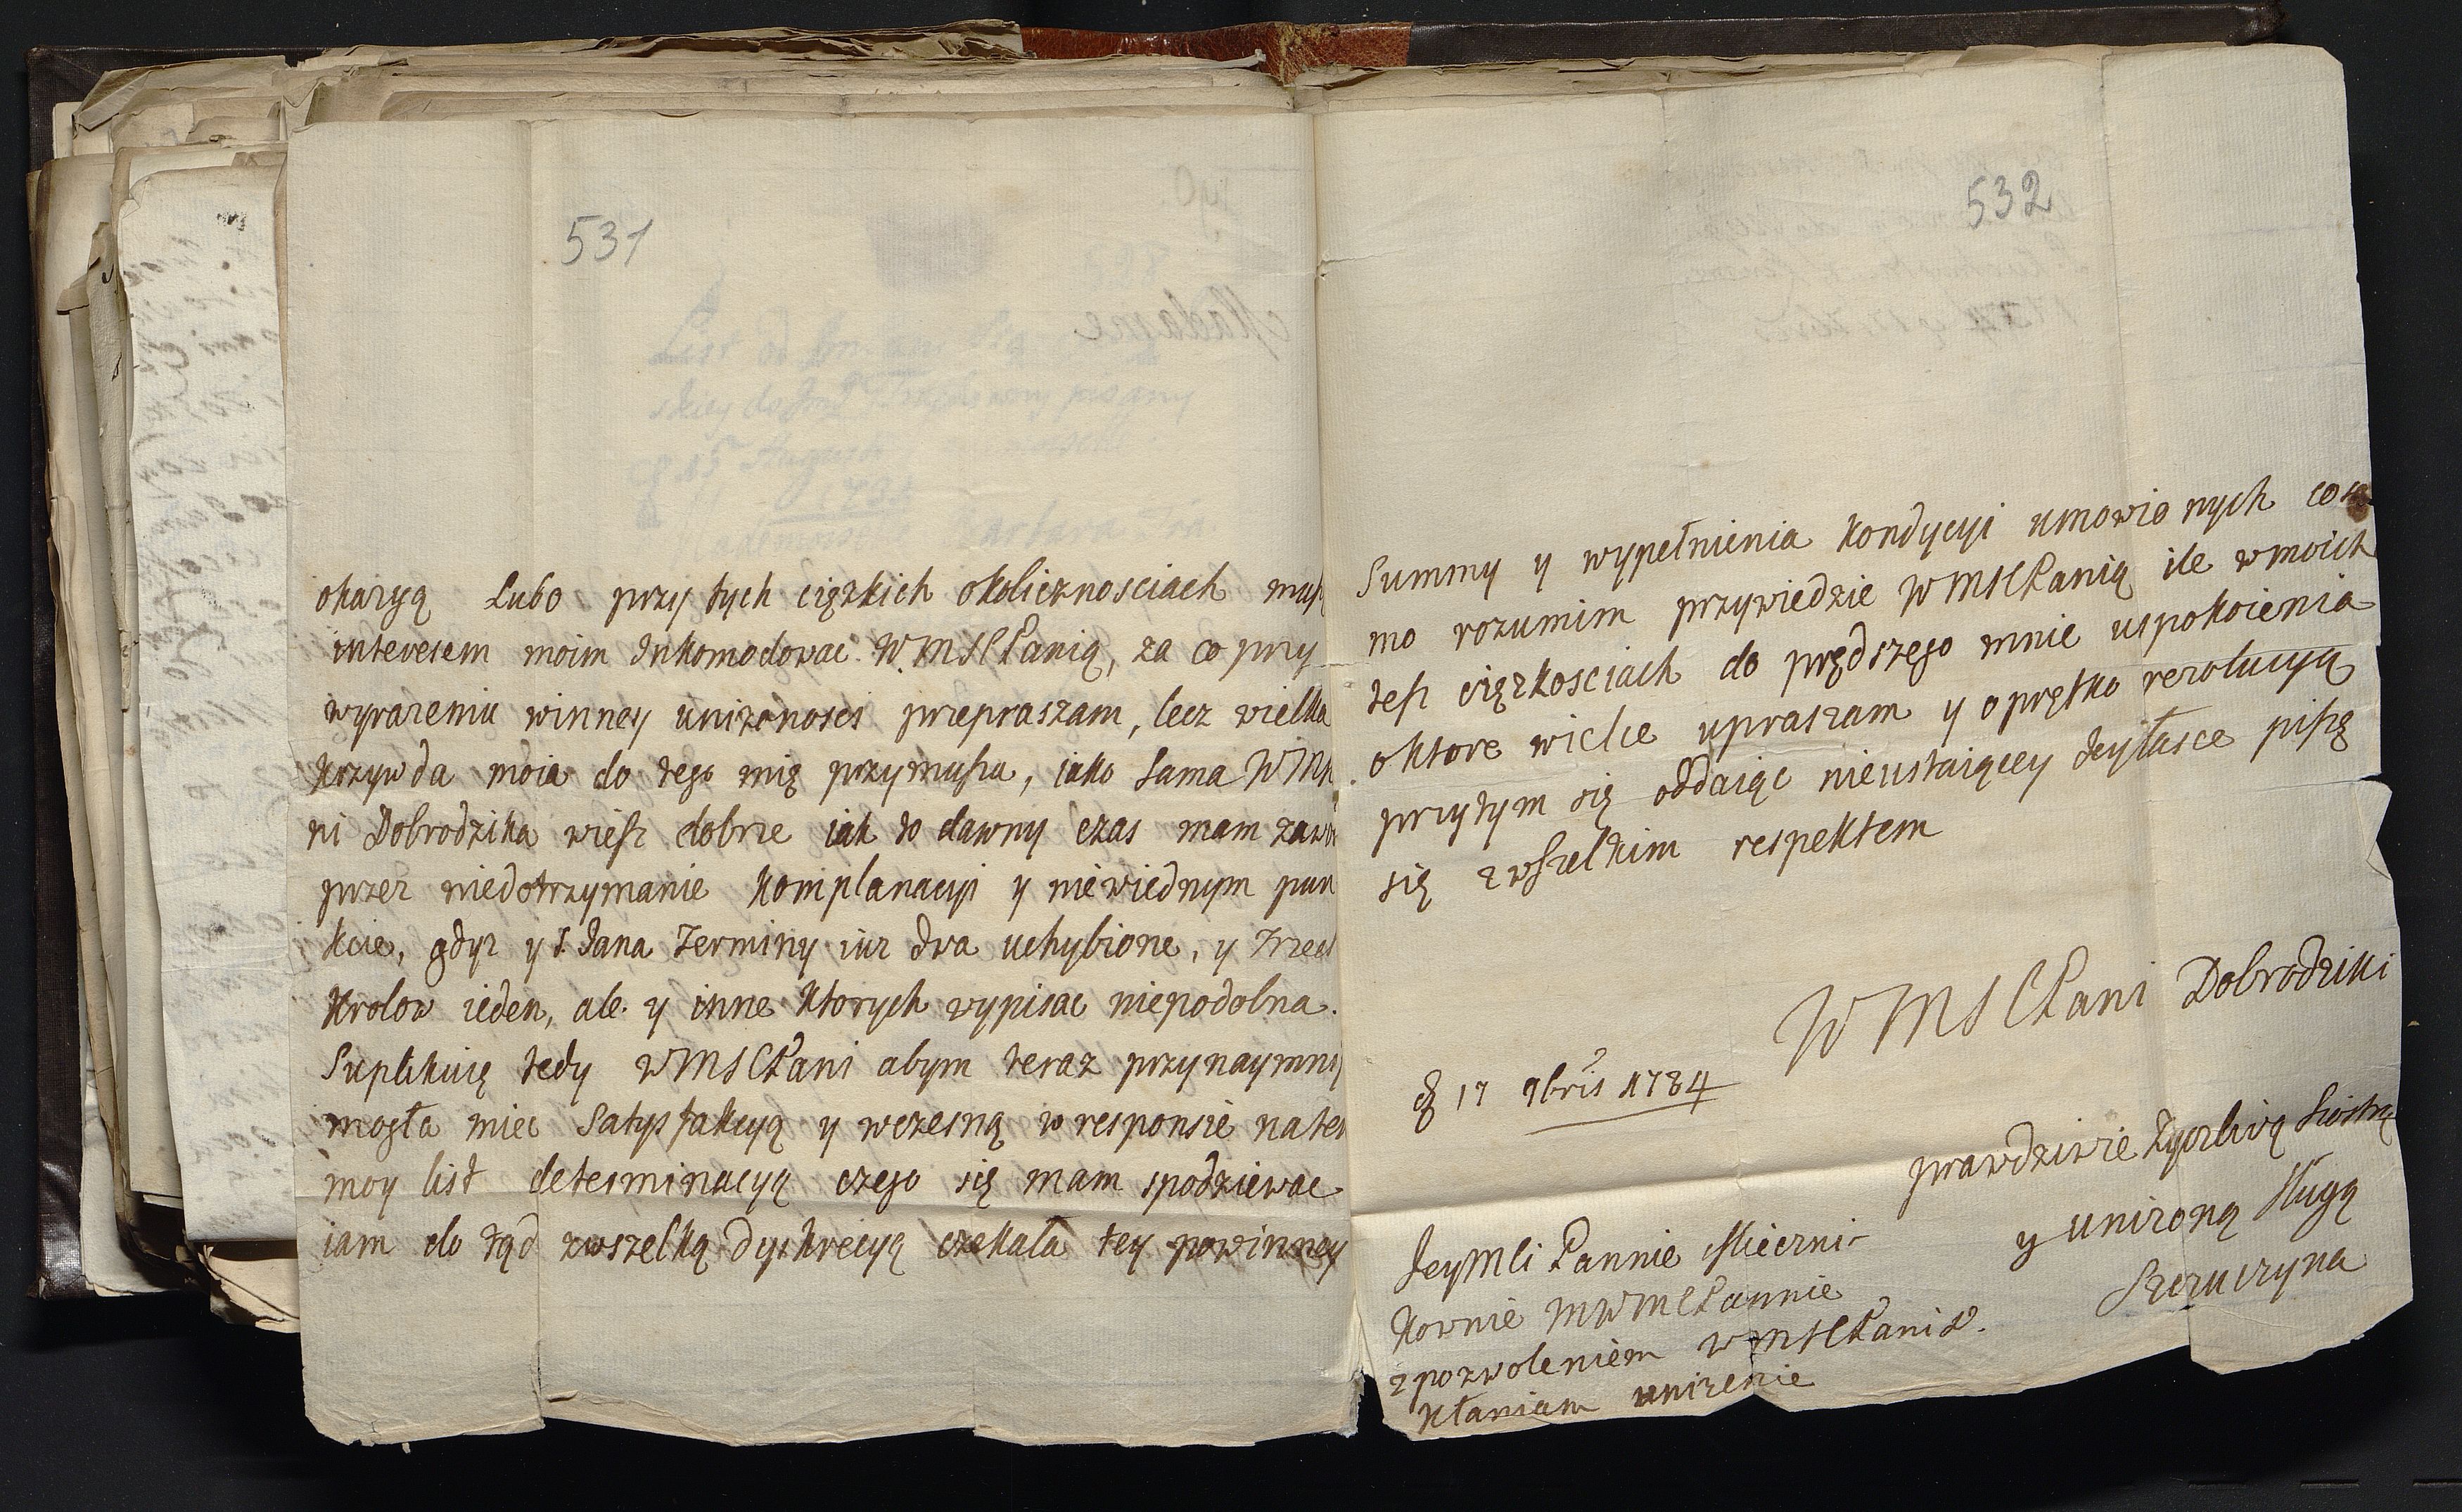 531
okazyą Lubo przy tych ciężkich okolicznosciach
interesem moim Inkomodowac WMSCPanią, za co przy
wyrazeniu winney unizonosci przepraszam, lecz wielka
krzywda moia do tego mię przymusza, iako sama
ni Dobrodzika wiesz dobrze iak to dawny czas mam
przez niedotrzymanie komplanacyi y niewiednym pun
kcie, gdyz y S. Jana Terminy iuz dwa uchybione, y Trzech
Krolow ieden, ale y inne ktorych wypisac niepodobna.
Suplikuię tedy WMSCPani abym teraz przynaymni
mogła miec Satysfakcyą y wczesną w responsie naten
moy list determinacyą czego się mam spodziewac
iam do tąd zwszelką dyskrecyą czekała tey powinney
532
Summy y wypełnienia kondycyi umowio nych
mo rozumim przywiedzie WMSCPanią ile wmoich
tesz cięzkosciach do prędszego mnie uspokoienia
oktore wielce upraszam y oprętko rezolucyą
przytym się oddaiąc nieustaiącey Jeyłasce piszę
się zwszelkim respektem
WMSCPani Dobrodziki
17 9bris 1734
prawdziwie Zyczliwą Siostrą
y unizoną Sługą
Szczuczyna
JeyMCi Pannie Mierni-
kownie MWMCPannie
zpozwoleniem WMSCPani D.
kłaniam unizenie